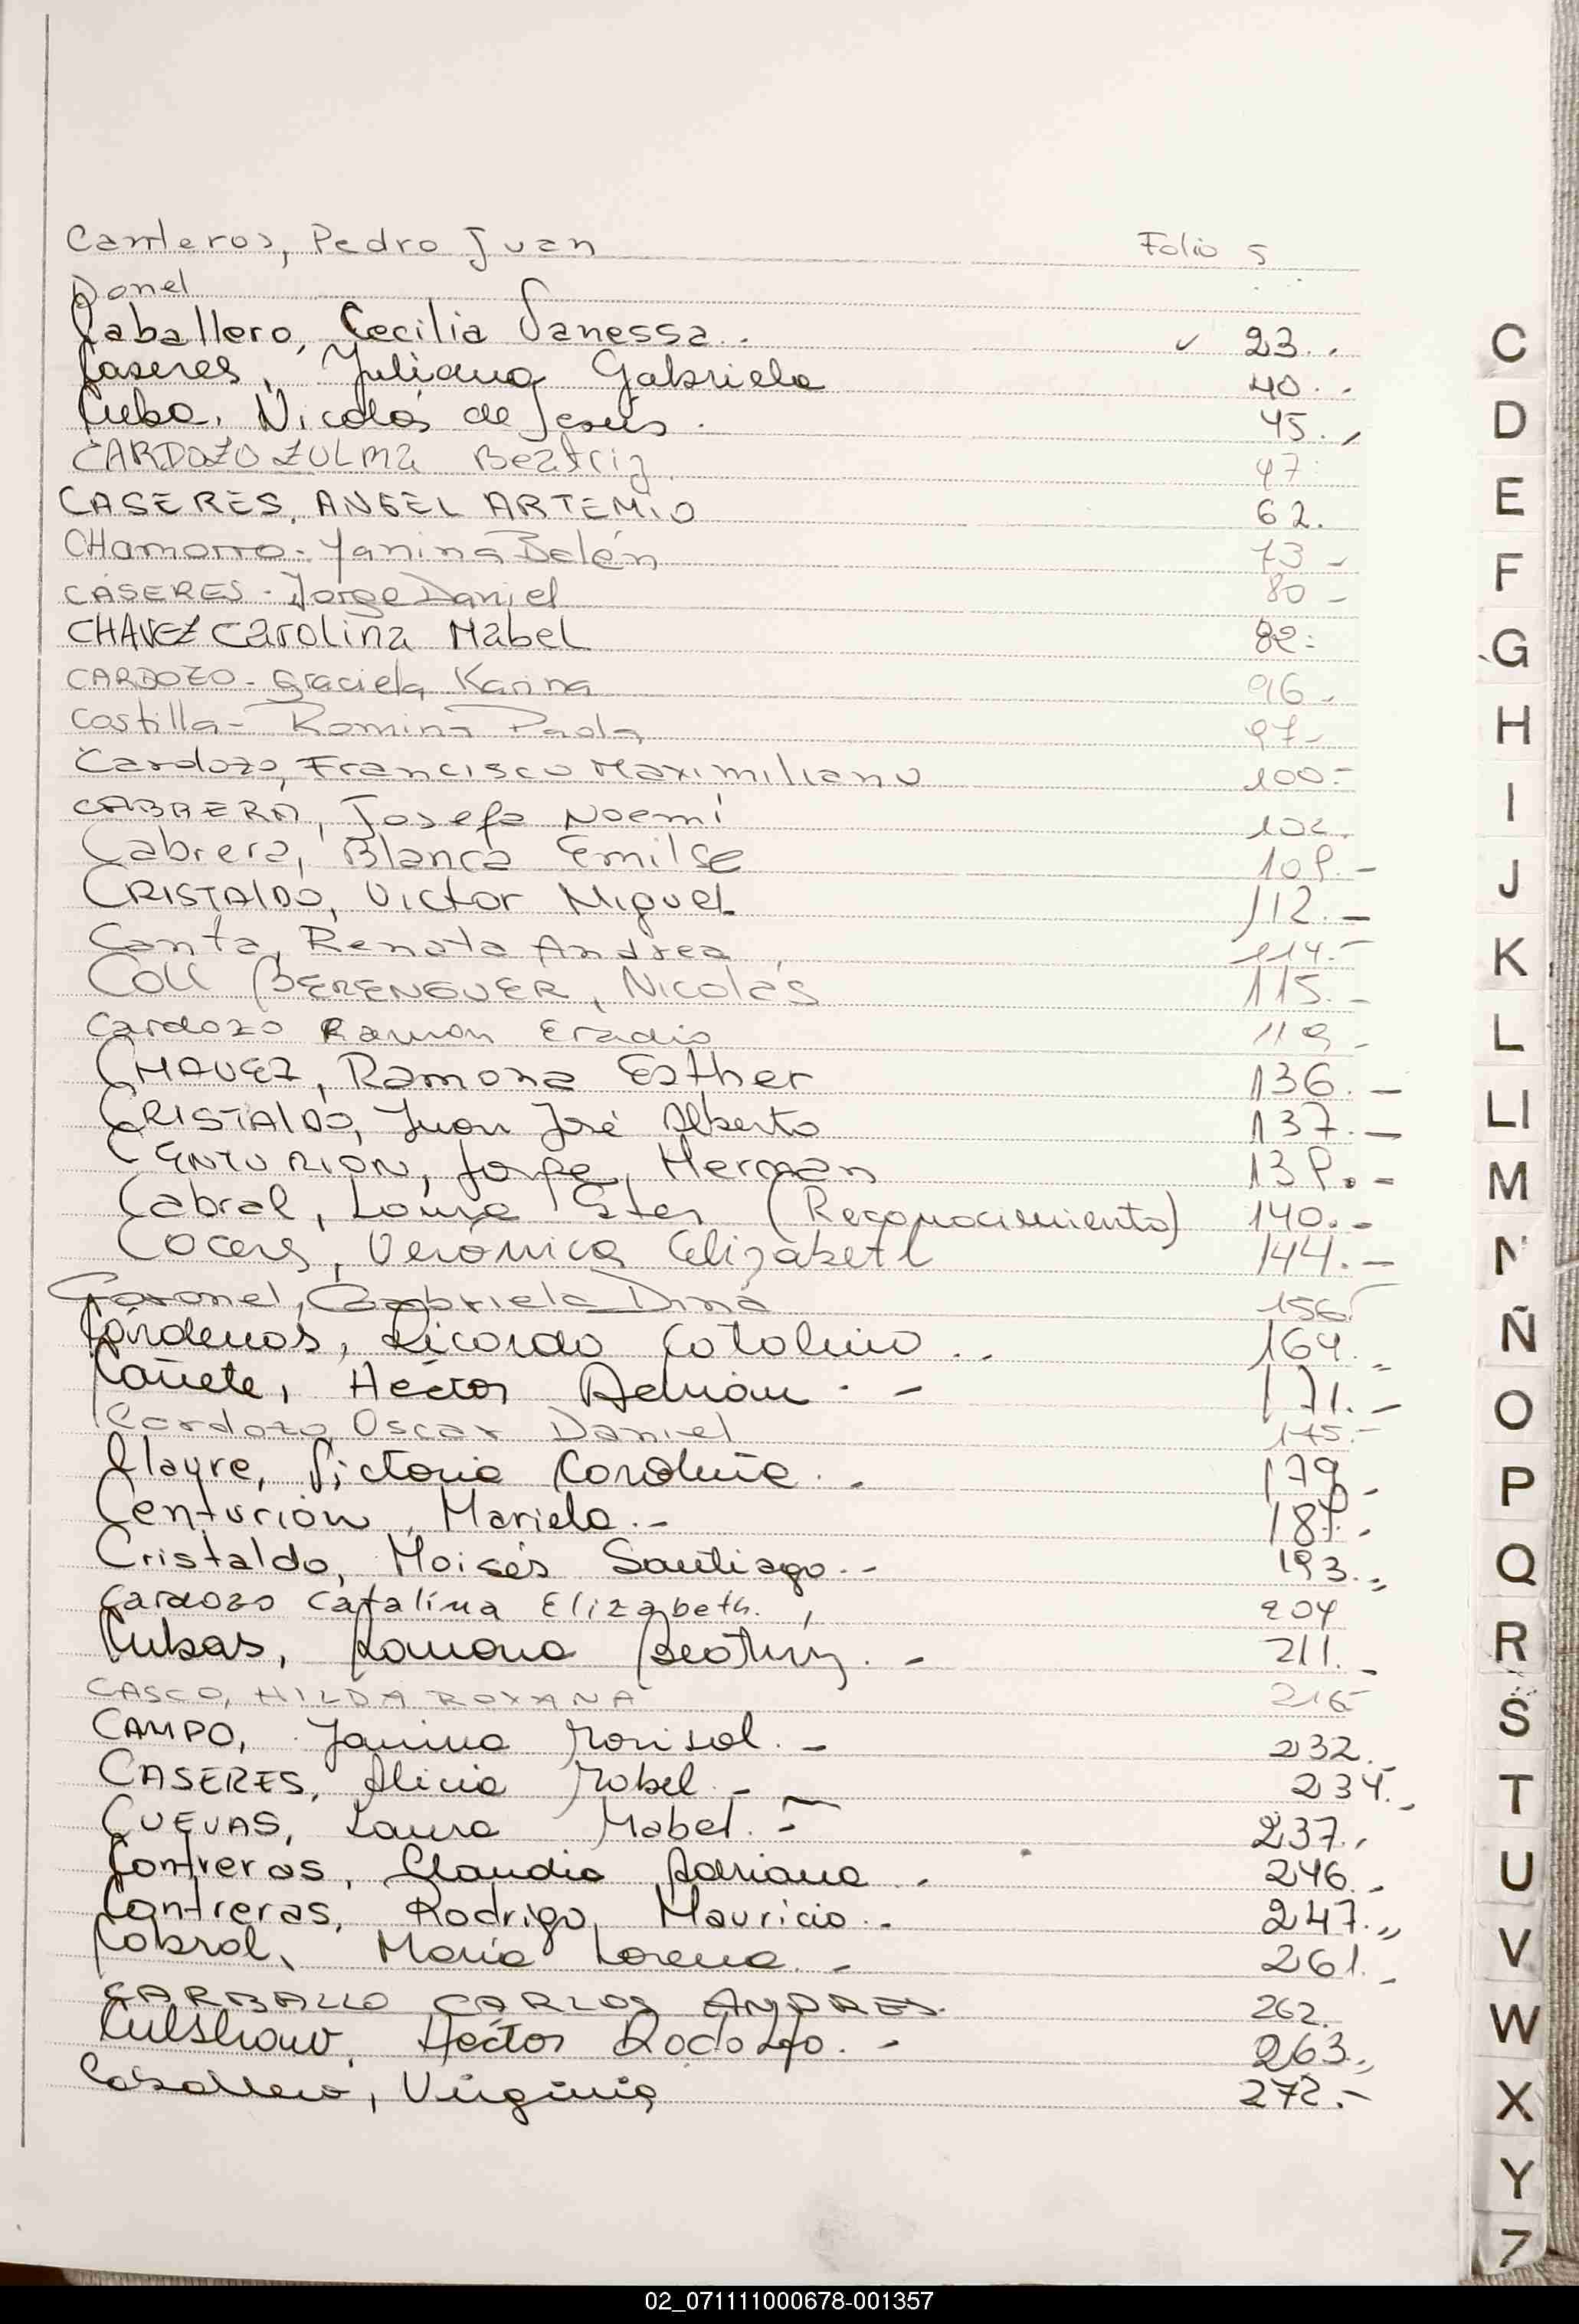 Canteros, Pedro Juan Folio 5
Donel
Caballero, Cecilia Vanessa.. ✓ 23..
Caseres, Juliana Gabriela 40..
Cuba, Nicolás de Jesús. 45.,
CARDOZO ZULMA Beatriz 47.
CASERES, ANGEL ARTEMIO 62.
CHamorro- Yanina Belén 73-
CÁSERES- Jorge Daniel 80-
CHAVEZ Carolina Mabel 82:
CARDOZO- Graciela Karina 96-
Costilla- Romina Paola 97-
Cardozo, Francisco Maximiliano 100-
CABRERA, Josefa Noemí 102.
Cabrera, Blanca Emilse 108.-
CRISTALDO, Victor Miguel 112.-
Canta, Renata Andrea 114.-
Coll BERENGUER, Nicolás 115.-
Cardozo Ramon Eradio 119-
CHAVEZ, Ramona Esther 136.-
CRISTALDO, Juan José Alberto 137.-
CENTURION, Jorge, Hernan 138.-
Cabral, Louisa Ester (Reconocimiento) 140.-
Cocera, Verónica Elizabeth 144.-
Coronel, Gabriela Dina 156
Cárdenas, Ricardo Catalino.. 164.
Cañete, Héctor Adrián.- 171.-
Cardozo, Oscar Daniel 175.-
Clayre, Victoria Carolina.. 179-
Centurión, Mariela.- 187.
Cristaldo, Moisés Santiago.- 193.
Cardozo Catalina Elizabeth. 204
Cubas, Ramona Beatríz.- 211.-
CASCO, HILDA ROXANA 216-
CAMPO, Janina Marisol.- 232.
CASERES, Alicia Mabel.- 234.
CUEVAS, Laura Mabel.- 237.,
Contreras, Claudia Adriana.. 246.-
Contreras, Rodrigo, Mauricio.. 247.,,
Cabral, María Lorena.- 261.-
CARBALLO CARLOS ANDRES. 262.
Culshaw, Héctor Rodolfo.- 263.,,
Caballero, Virginia 272.-
C
D
E
F
G
H
I
J
K
L
Ll
M
N
Ñ
O
P
Q
R
S
T
U
V
W
X
Y
Z
02_071111000678-001357